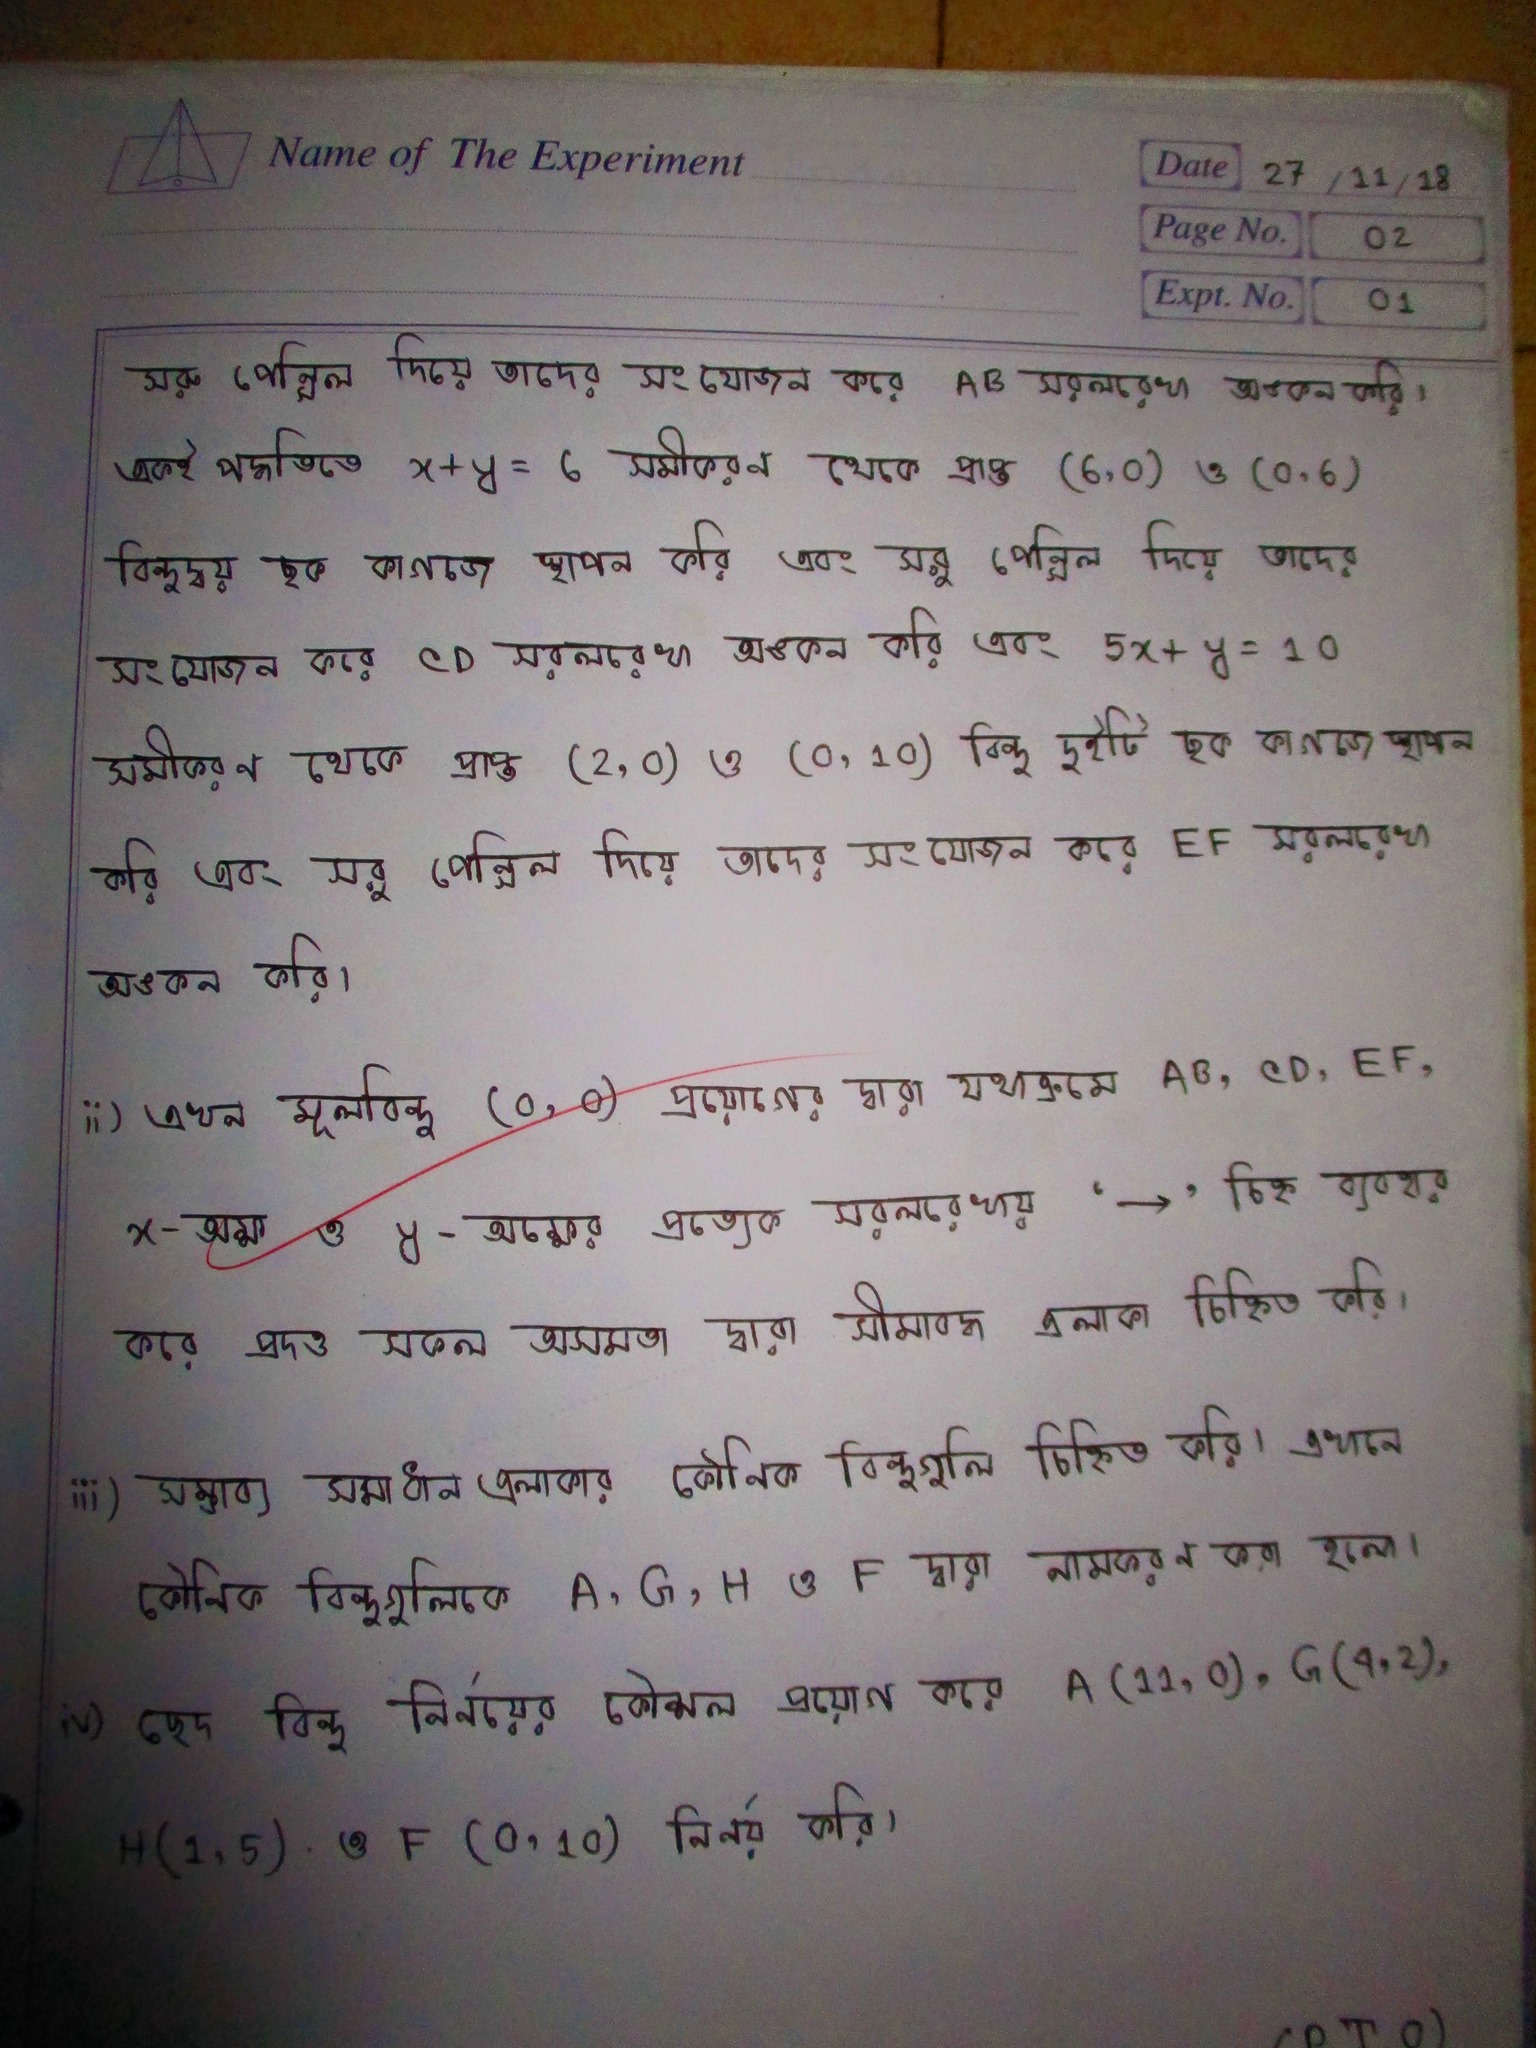 Name of The Experiment
Date 27/11/18
Page No. 02
Expt. No. 01
সরু পেন্সিল দিয়ে তাদের সংযোজন করে AB সরলরেখা অঙকন করি।
একই পদ্ধতিতে x+y= 6 সমীকরন থেকে প্রাপ্ত (6,0) ও (0,6)
বিন্দুদ্বয় ছক কাগজে স্থাপন করি এবং সরু পেন্সিল দিয়ে তাদের
সংযোজন করে CD সরলরেখা অঙকন করি এবং 5x+y=10
সমীকরন থেকে প্রাপ্ত (2,0) ও (0,10) বিন্দু দুইটি ছক কাগজে স্থাপন
করি এবং সরু পেন্সিল দিয়ে তাদের সংযোজন করে EF সরলরেখা
অঙকন করি।
ii) এখন মূলবিন্দু (0,0) প্রয়োগের দ্বারা যথাক্রমে AB, CD, EF,
x-অক্ষ ও y-অক্ষের প্রত্যেক সরলরেখায় '→' চিহ্ন ব্যবহার
করে প্রদত্ত সকল অসমতা দ্বারা সীমাবদ্ধ এলাকা চিহ্নিত করি।
iii) সম্ভাব্য সমাধান এলাকার কৌনিক বিন্দুগুলি চিহ্নিত করি। এখানে
কৌনিক বিন্দুগুলিকে A, G, H ও F দ্বারা নামকরন করা হলো।
iv) ছেদ বিন্দু নির্নয়ের কৌশল প্রয়োগ করে A(11,0), G(4,2),
H(1,5). ও F (0,10) নির্নয় করি।
(P.T.O)